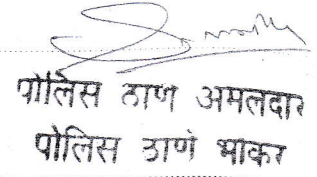 पोलिस ठाणे अमलदार
पोलिस ठाणे भोकर